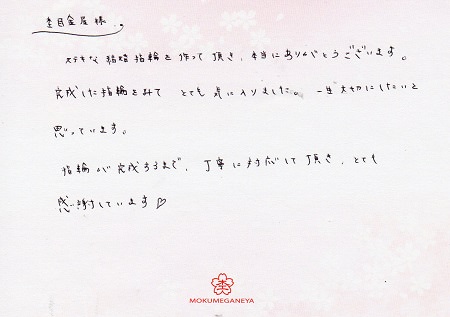 杢目金屋様
ステキな結婚指輪を作って頂き、本当にありがとうございます。
完成した指輪をみて とても気に入りました。一生大切にしたいと
思っています。
指輪が完成するまで、丁寧に対応して頂き、とても
感謝しています♡
MOKUMEGANEYA